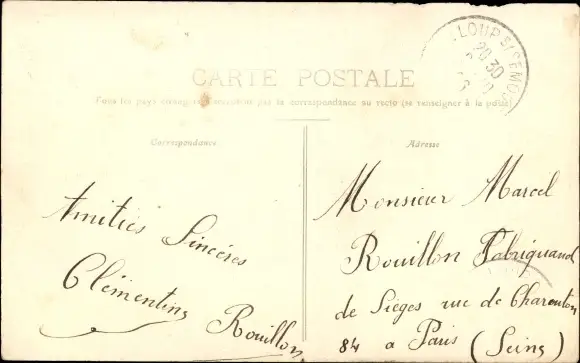 LOUP S/ SEMOU
20 30
CARTE POSTALE
Tous les pays étrangers n'acceptent pas la correspondance au recto (se renseigner à la poste)
Correspondance
Adresse
Amitiés Sincères
Clémentine Rouillon
Monsieur Marcel
Rouillon Fabriquand
de Sièges rue de Charenton
84 a Paris (Seine)